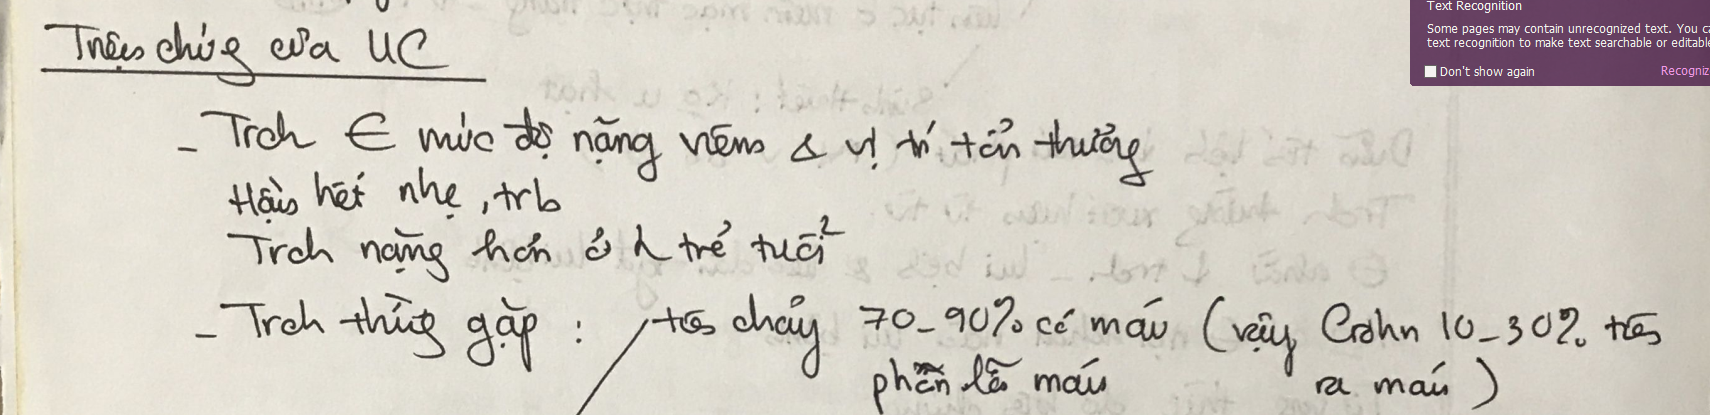 Triệu chứng của UC
- Trch ∈ mức độ nặng viêm & vị trí tổn thương
Hầu hết nhẹ, trb
Trch nặng hơn ở trẻ tuổi²
- Trch thường gặp : tiêu chảy 70-90% có máu (vậy Crohn 10-30% tiêu
phân lẫn máu ra máu)
Text Recognition
Some pages may contain unrecognized text. You ca
text recognition to make text searchable or editable
Don't show again
Recogniz